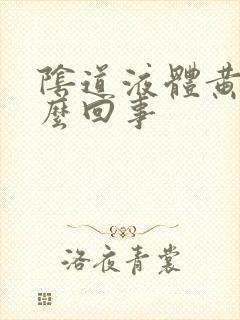 陰道液體黃
麼回事
洛夜青裳